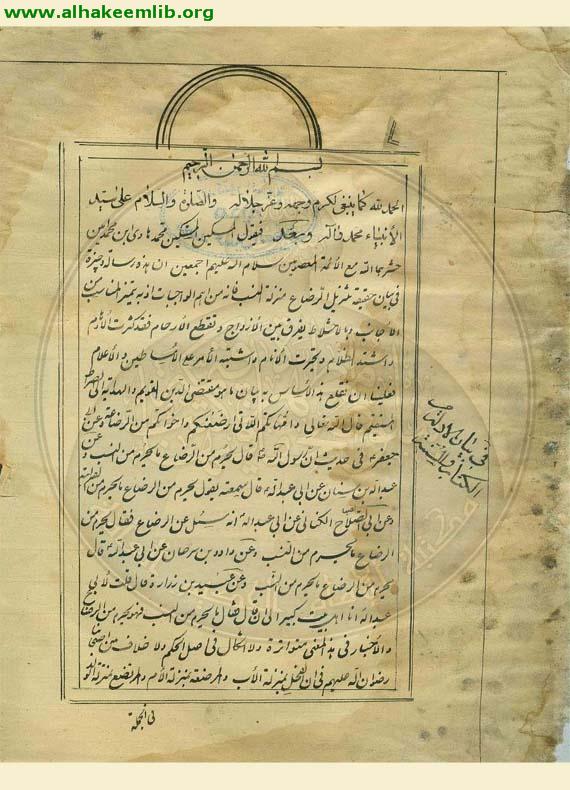 www.alhakeemlib.org
بسم الله الرحمن الرحيم
الحمد لله كما ينبغي لكرم وجهه وعز جلاله والصلوة والسلام على سيد
الأنبياء محمد وآله وبعد فيقول المسكين المستكين محمد هادي بن محمد امين
حشرهما الله مع الأئمة المعصومين سلام الله عليهم اجمعين ان هذه رسالة وجيزة
في بيان حقيقة تنزيل الرضاع منزلة النسب فانه من اهم الواجبات اذ به يتميز المناسب من
الأجانب وبالاختلاط يفرق بين الأزواج وتقطع الأرحام فقد كثرت الأوهام
واشتد الظلام وتحيرت الأنام واشتبه الأمر على الأساطين والأعلام
فعلينا ان نقلع هذا الأساس ببيان ما هو مقتضى الدين القويم والهداية الى الصراط
المستقيم قال الله تعالى وامهاتكم اللاتي ارضعنكم واخواتكم من الرضاعة وعن ابي
جعفر ع في حديث ان رسول الله ص قال يحرم من الرضاع ما يحرم من النسب وعن
عبد الله بن سنان عن ابي عبد الله ع قال سمعته يقول يحرم من الرضاع ما يحرم من القرابة
وعن ابي الصباح الكناني عن ابي عبد الله ع انه سئل عن الرضاع فقال يحرم من
الرضاع ما يحرم من النسب وعن داود بن سرحان عن ابي عبد الله ع قال
يحرم من الرضاع ما يحرم من النسب وعن عبيد بن زرارة قال قلت لأبي
عبد الله ع انا اهل بيت كبير الى ان قال فقال ما يحرم من النسب فهو يحرم من الرضاع
والأخبار في هذا المعنى متواترة ولا اشكال في اصل الحكم ولا خلاف من اصحابنا
رضوان الله عليهم في ان الفحل بمنزلة الأب والمرضعة بمنزلة الأم والمرتضع بمنزلة الولد
في الجملة
في بيان الادلة من
الكتاب والسنة